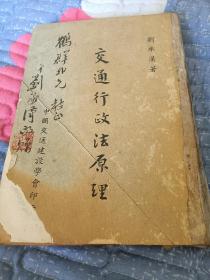 劉承漢著
交通行政法原理
中國交通建設學會印
鶴群兄
劉承漢